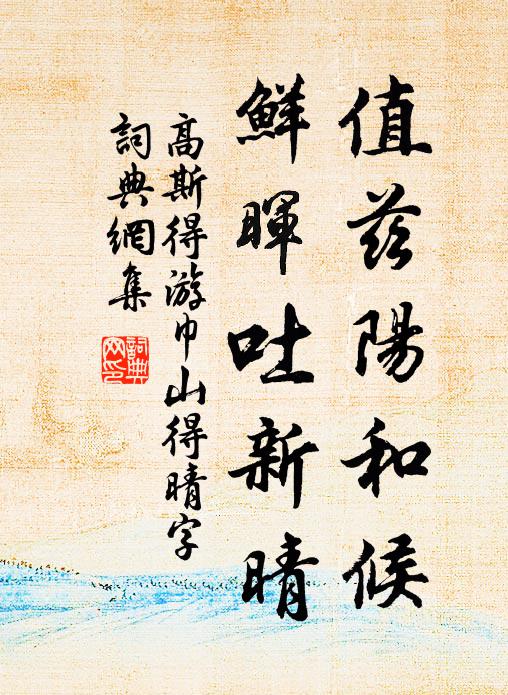 值茲陽和候
鮮暉吐新晴
高斯得游巾山得晴字
詞典網集
詞典
网印